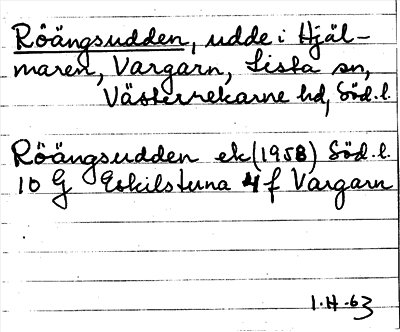 Röängsudden, udde i Hjäl-
maren, Vargarn, Lista sn,
Västerrekarne hd, Söd.l.
Röängsudden ek (1958) Söd.l.
10 G Eskilstuna 4 f Vargarn
1.H.-63